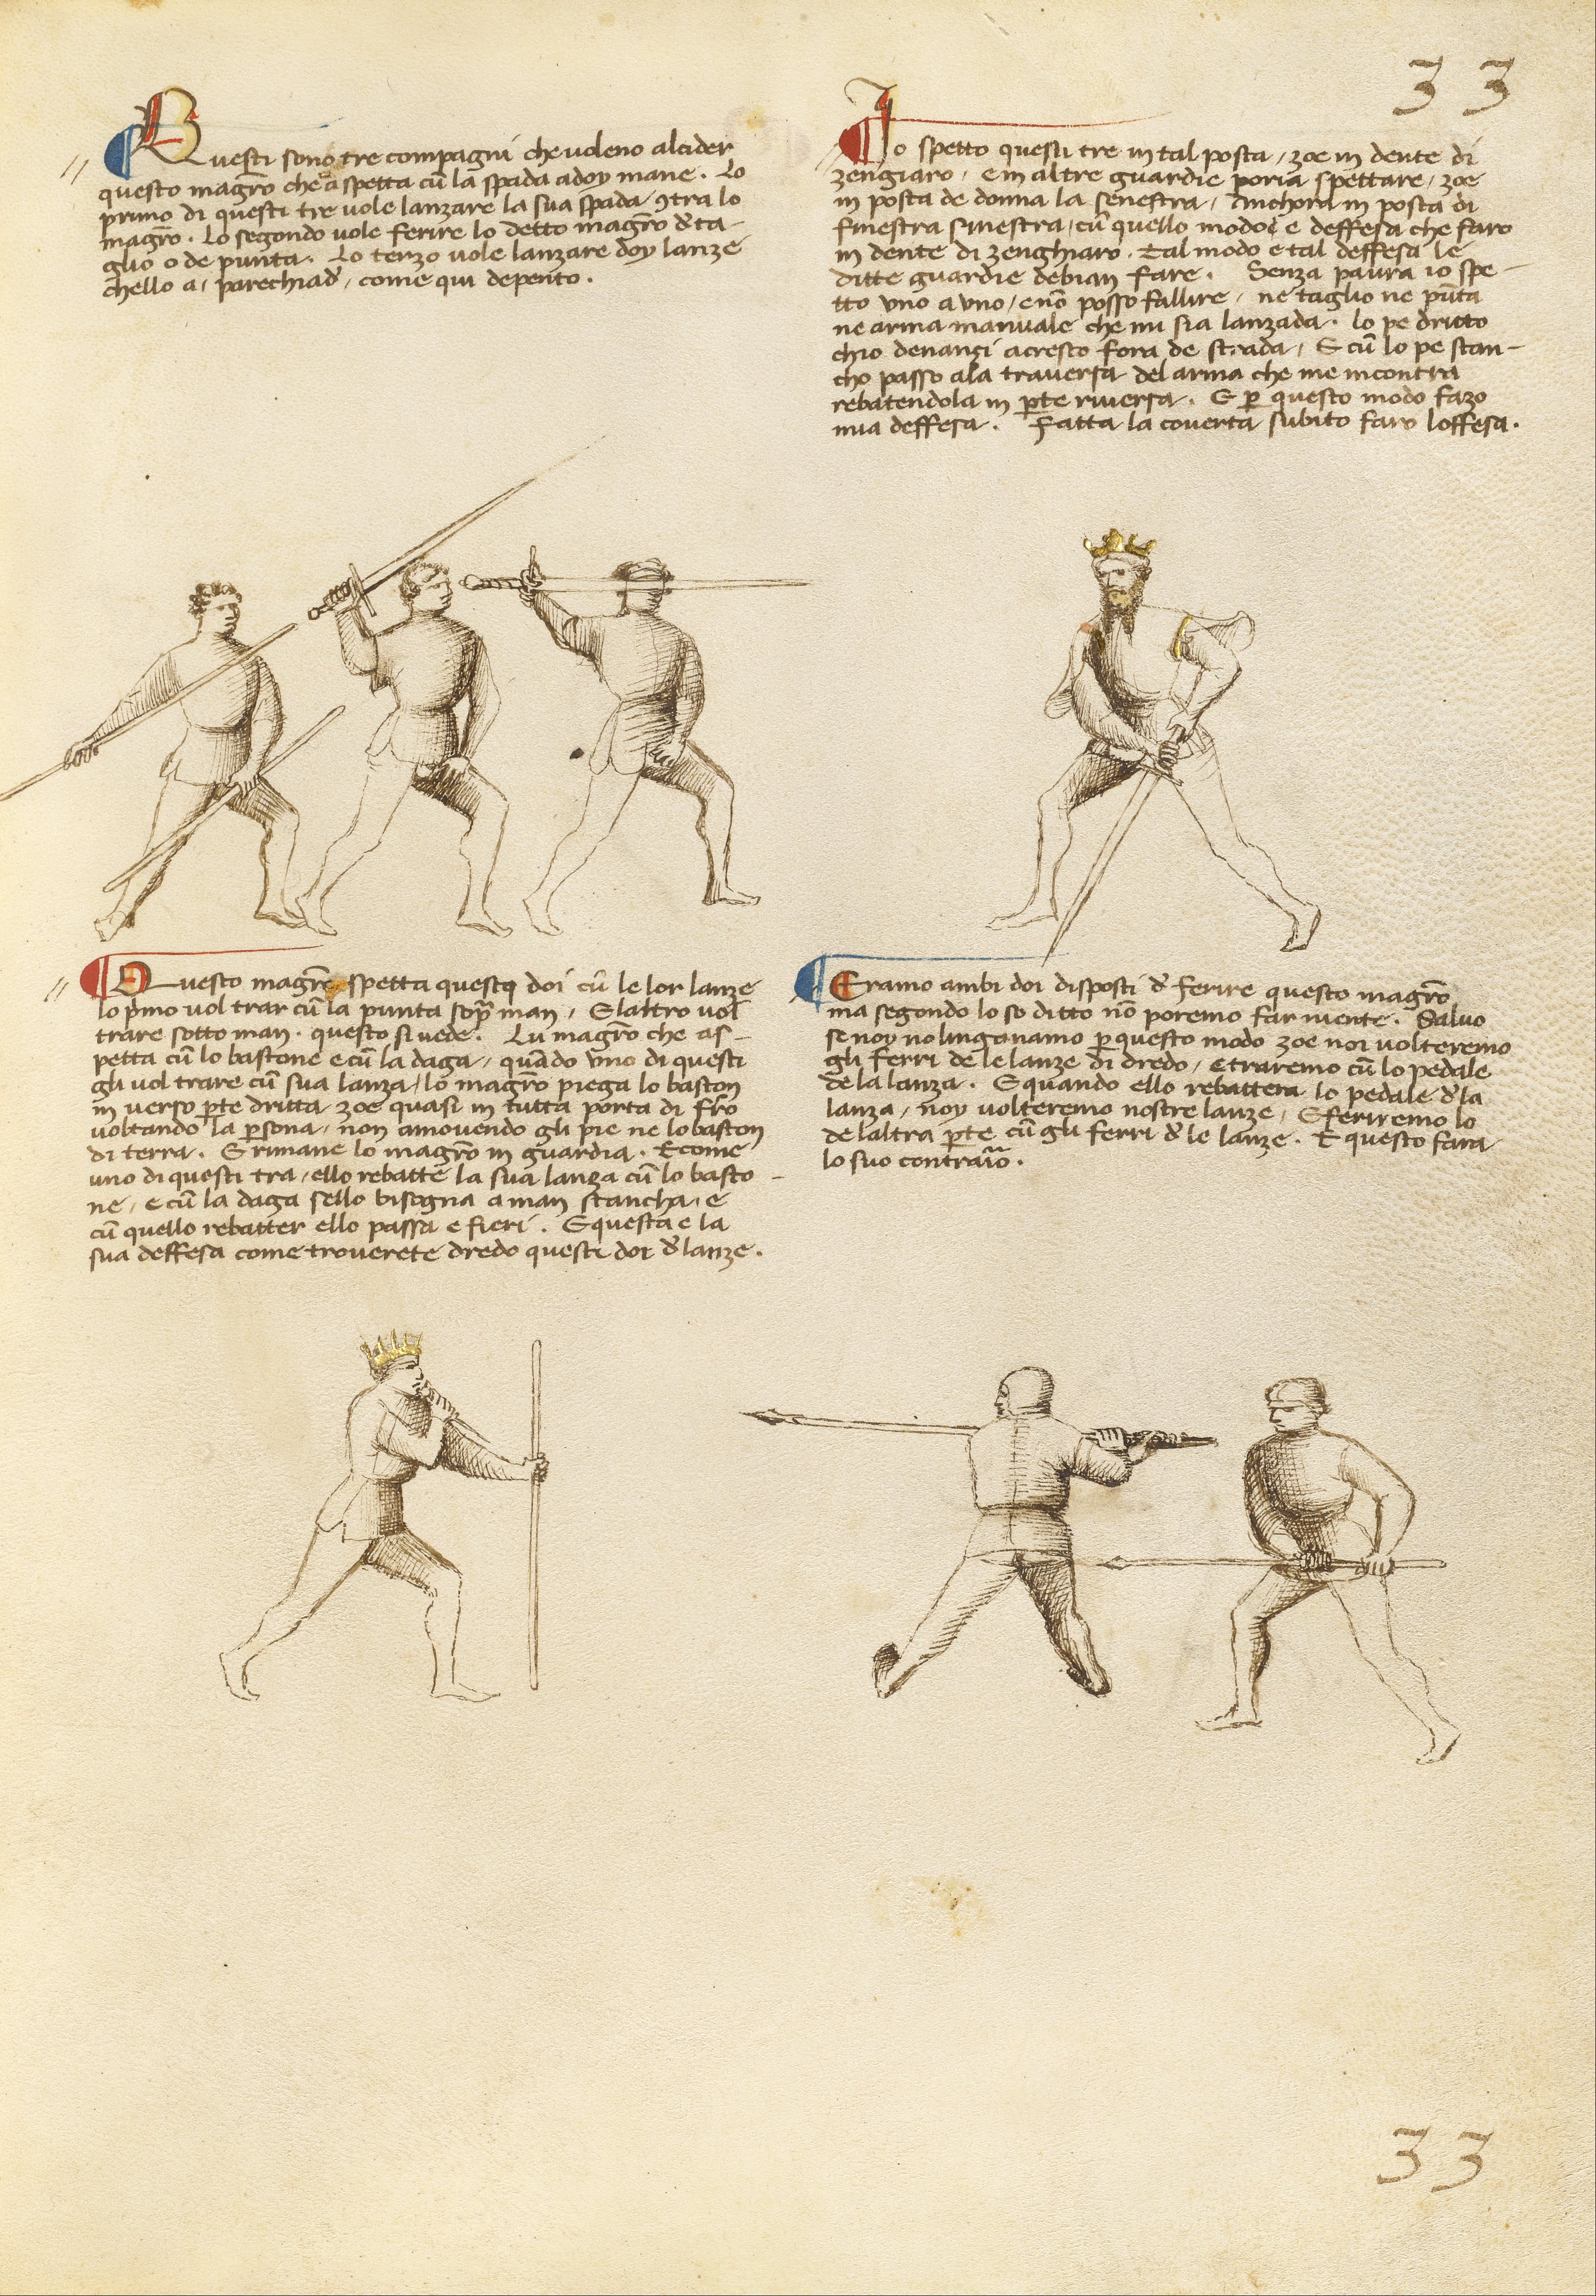 33
Questi sono tre compagni che voleno alcider
questo magr̄o che aspetta cū la spada a doy mane. Lo
primo di questi tre vole lanzare la sua spada ꝯtra lo
magr̄o. Lo segondo vole ferire lo detto magr̄o d' ta-
glio o de punta. Lo terzo vole lanzare doy lanze
ch'ello a, parechiad', come qui depento.
Io spetto questi tre in tal posta, zoe in dente di
zengiaro, e in altre guardie poria spettare, zoe
in posta de donna la senestra, Anchora in posta di
finestra sinestra, cū quello modo e deffesa che faro
in dente di zenghiaro. Tal modo e tal deffesa le
ditte guardie debian fare. Senza paura io spe-
tto uno a uno, e nō posso fallire, ne taglio ne pūta
ne arma manuale che mi sia lanzada. lo pe dritto
ch'io denanzi acresco fora de strada, E cū lo pe stan-
cho passo ala traversa del arma che me incontra
rebatendola in ꝑte riversa. E ꝑ questo modo fazo
mia deffesa. Fatta la coverta subito faro l'offesa.
Questo magr̄o spetta questi doi cū le lor lanze
lo p'mo vol trar cū la punta sop̄ man, E l'altro vol
trare sotto man. questo si vede. Lu magr̄o che as-
petta cū lo bastone e cū la daga, quādo uno di questi
gli vol trare cū sua lanza, lo magr̄o piega lo baston
in verso ꝑte dritta zoe quasi in tutta porta di fr̄o
voltando la ꝑsona, non amovendo gli pie ne lo baston
di terra. E rimane lo magr̄o in guardia. E come
uno di questi tra, ello rebatte la sua lanza cū lo basto-
ne, e cū la daga s'ello bisogna a man stancha, e
cū quello rebatter ello passa e fieri. E questa e la
sua deffesa come troverete dredo questi doi d' lanze.
Eramo ambi doi disposti d' ferire questo magr̄o
ma segondo lo so ditto nō poremo far niente. Salvo
se noy no l'inganamo ꝑ questo modo zoe noi volteremo
gli ferri de le lanze di dredo, e traremo cū lo pedale
de la lanza. E quando ello rebattera lo pedale d' la
lanza, noy volteremo nostre lanze, E feriremo lo
de l'altra ꝑte cū gli ferri d' le lanze. E questo fara
lo suo contrario.
33